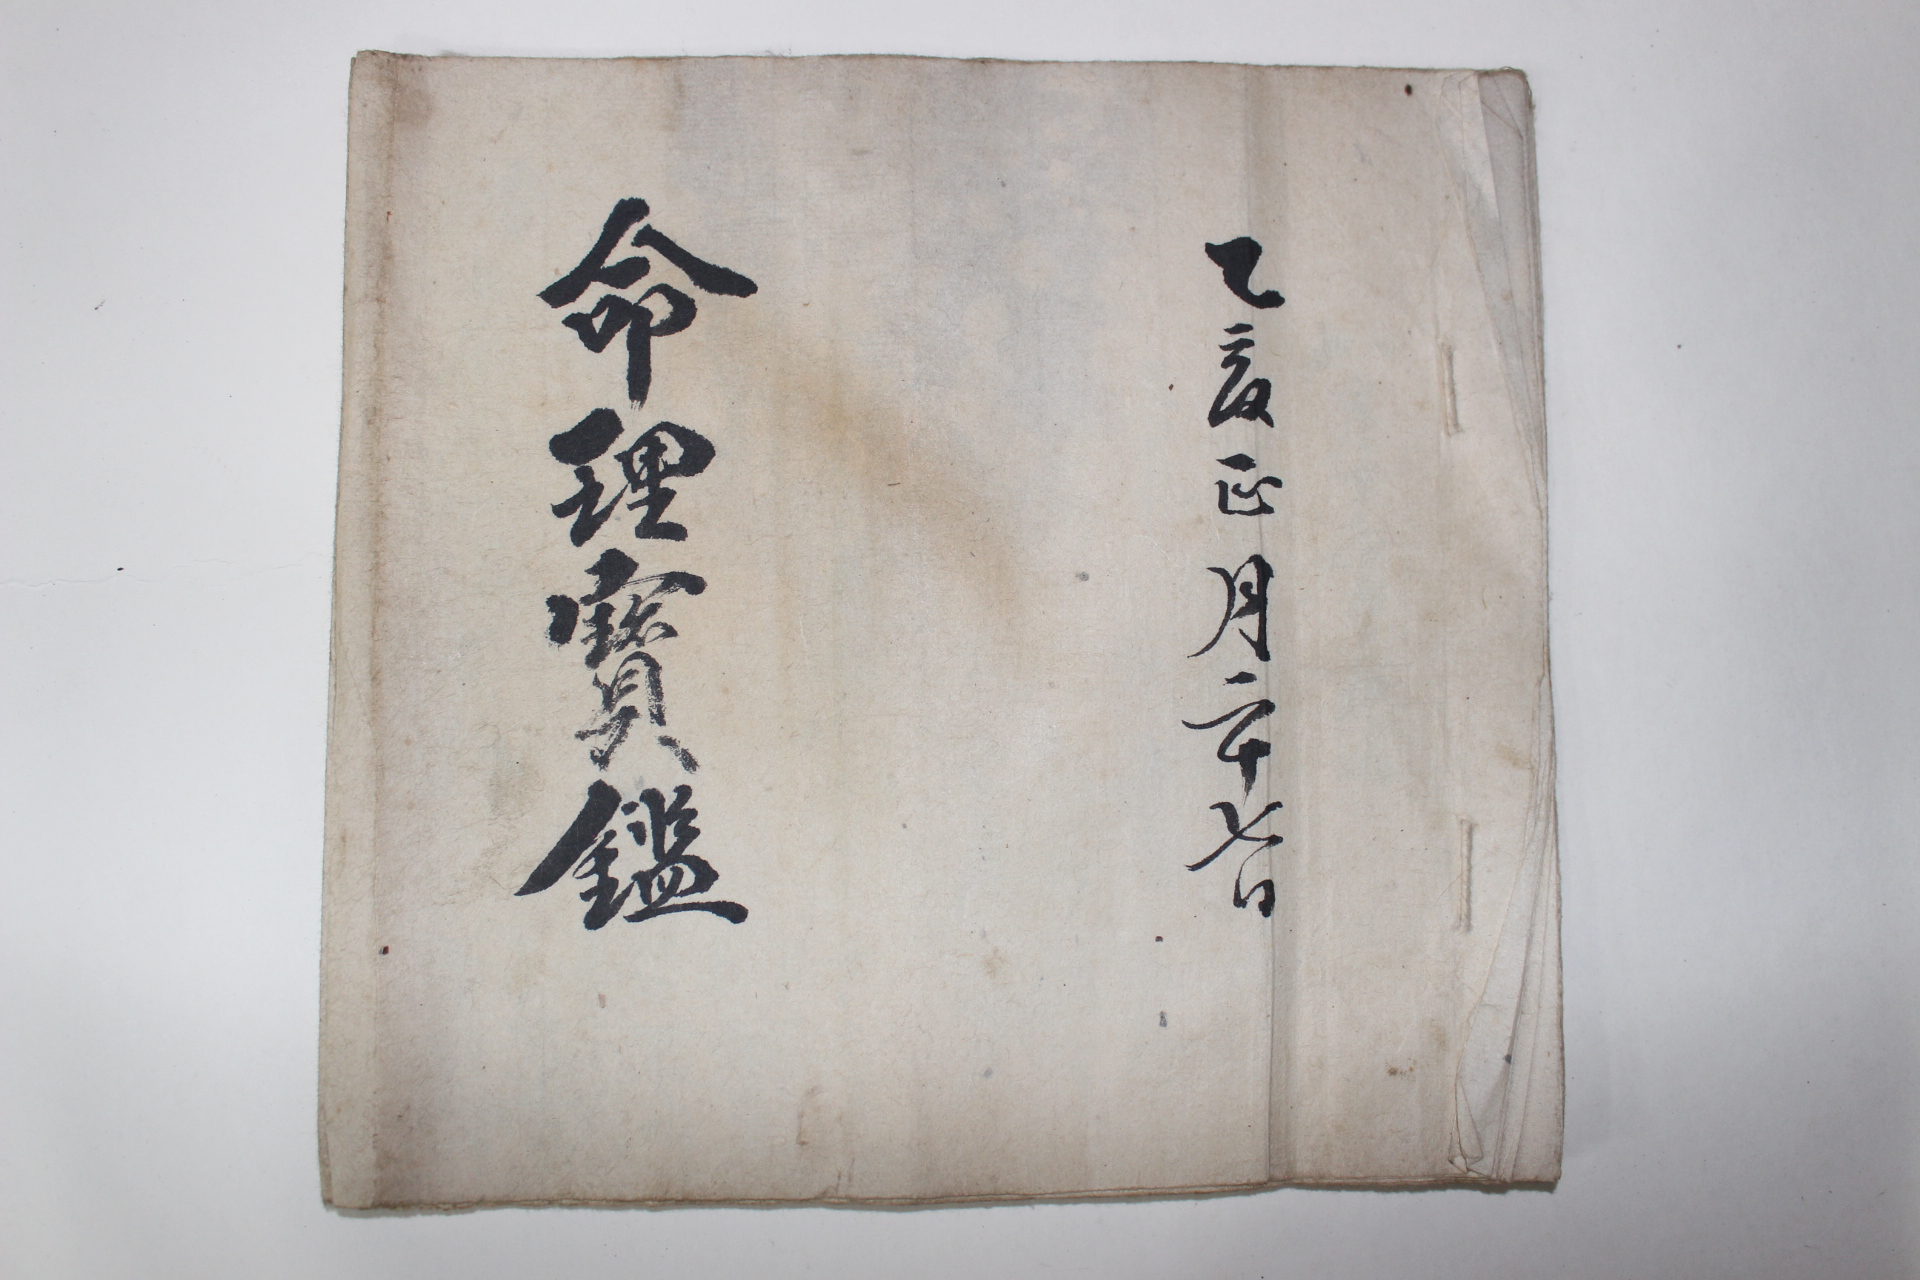 乙亥正月二十七日
命理寶鑑